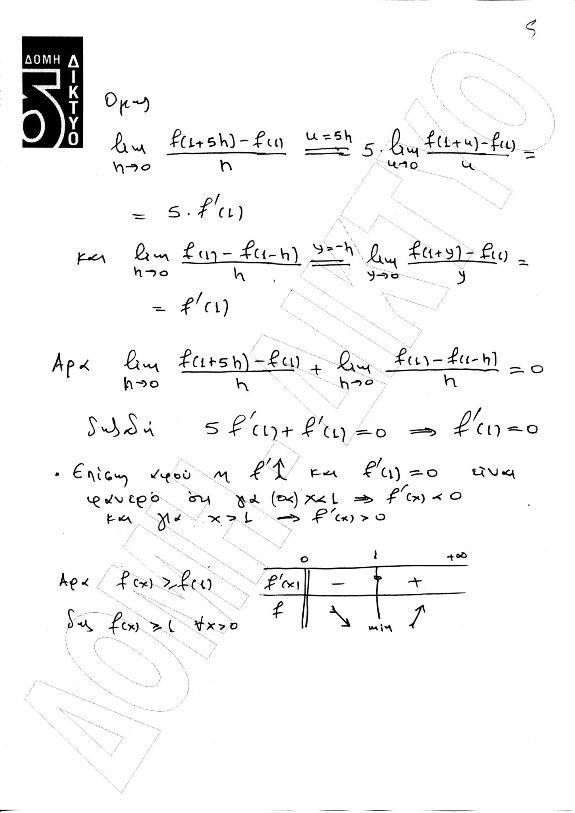 5
ΔΟΜΗ
ΔΙΚΤΥΟ
Ομως
lim h→0 (f(1+5h)-f(1))/h u=5h = 5·lim u→0 (f(1+u)-f(1))/u =
= 5·f'(1)
και lim h→0 (f(1)-f(1-h))/h y=-h = lim y→0 (f(1+y)-f(1))/y =
= f'(1)
Αρα lim h→0 (f(1+5h)-f(1))/h + lim h→0 (f(1)-f(1-h))/h = 0
δηλδή 5f'(1)+f'(1)=0 ⇒ f'(1)=0
• Επίση αφού η f'↑ και f'(1)=0 είναι
φανερό οτι για (0<) x<1 ⇒ f'(x)<0
και για x>1 ⇒ f'(x)>0
0 1 +∞
Αρα f(x) ≥ f(1) f'(x) - +
δηλ f(x) ≥ 1 ∀x>0 f ↘ min ↗
ΔΟΜΗ - ΔΙΚΤΥΟ